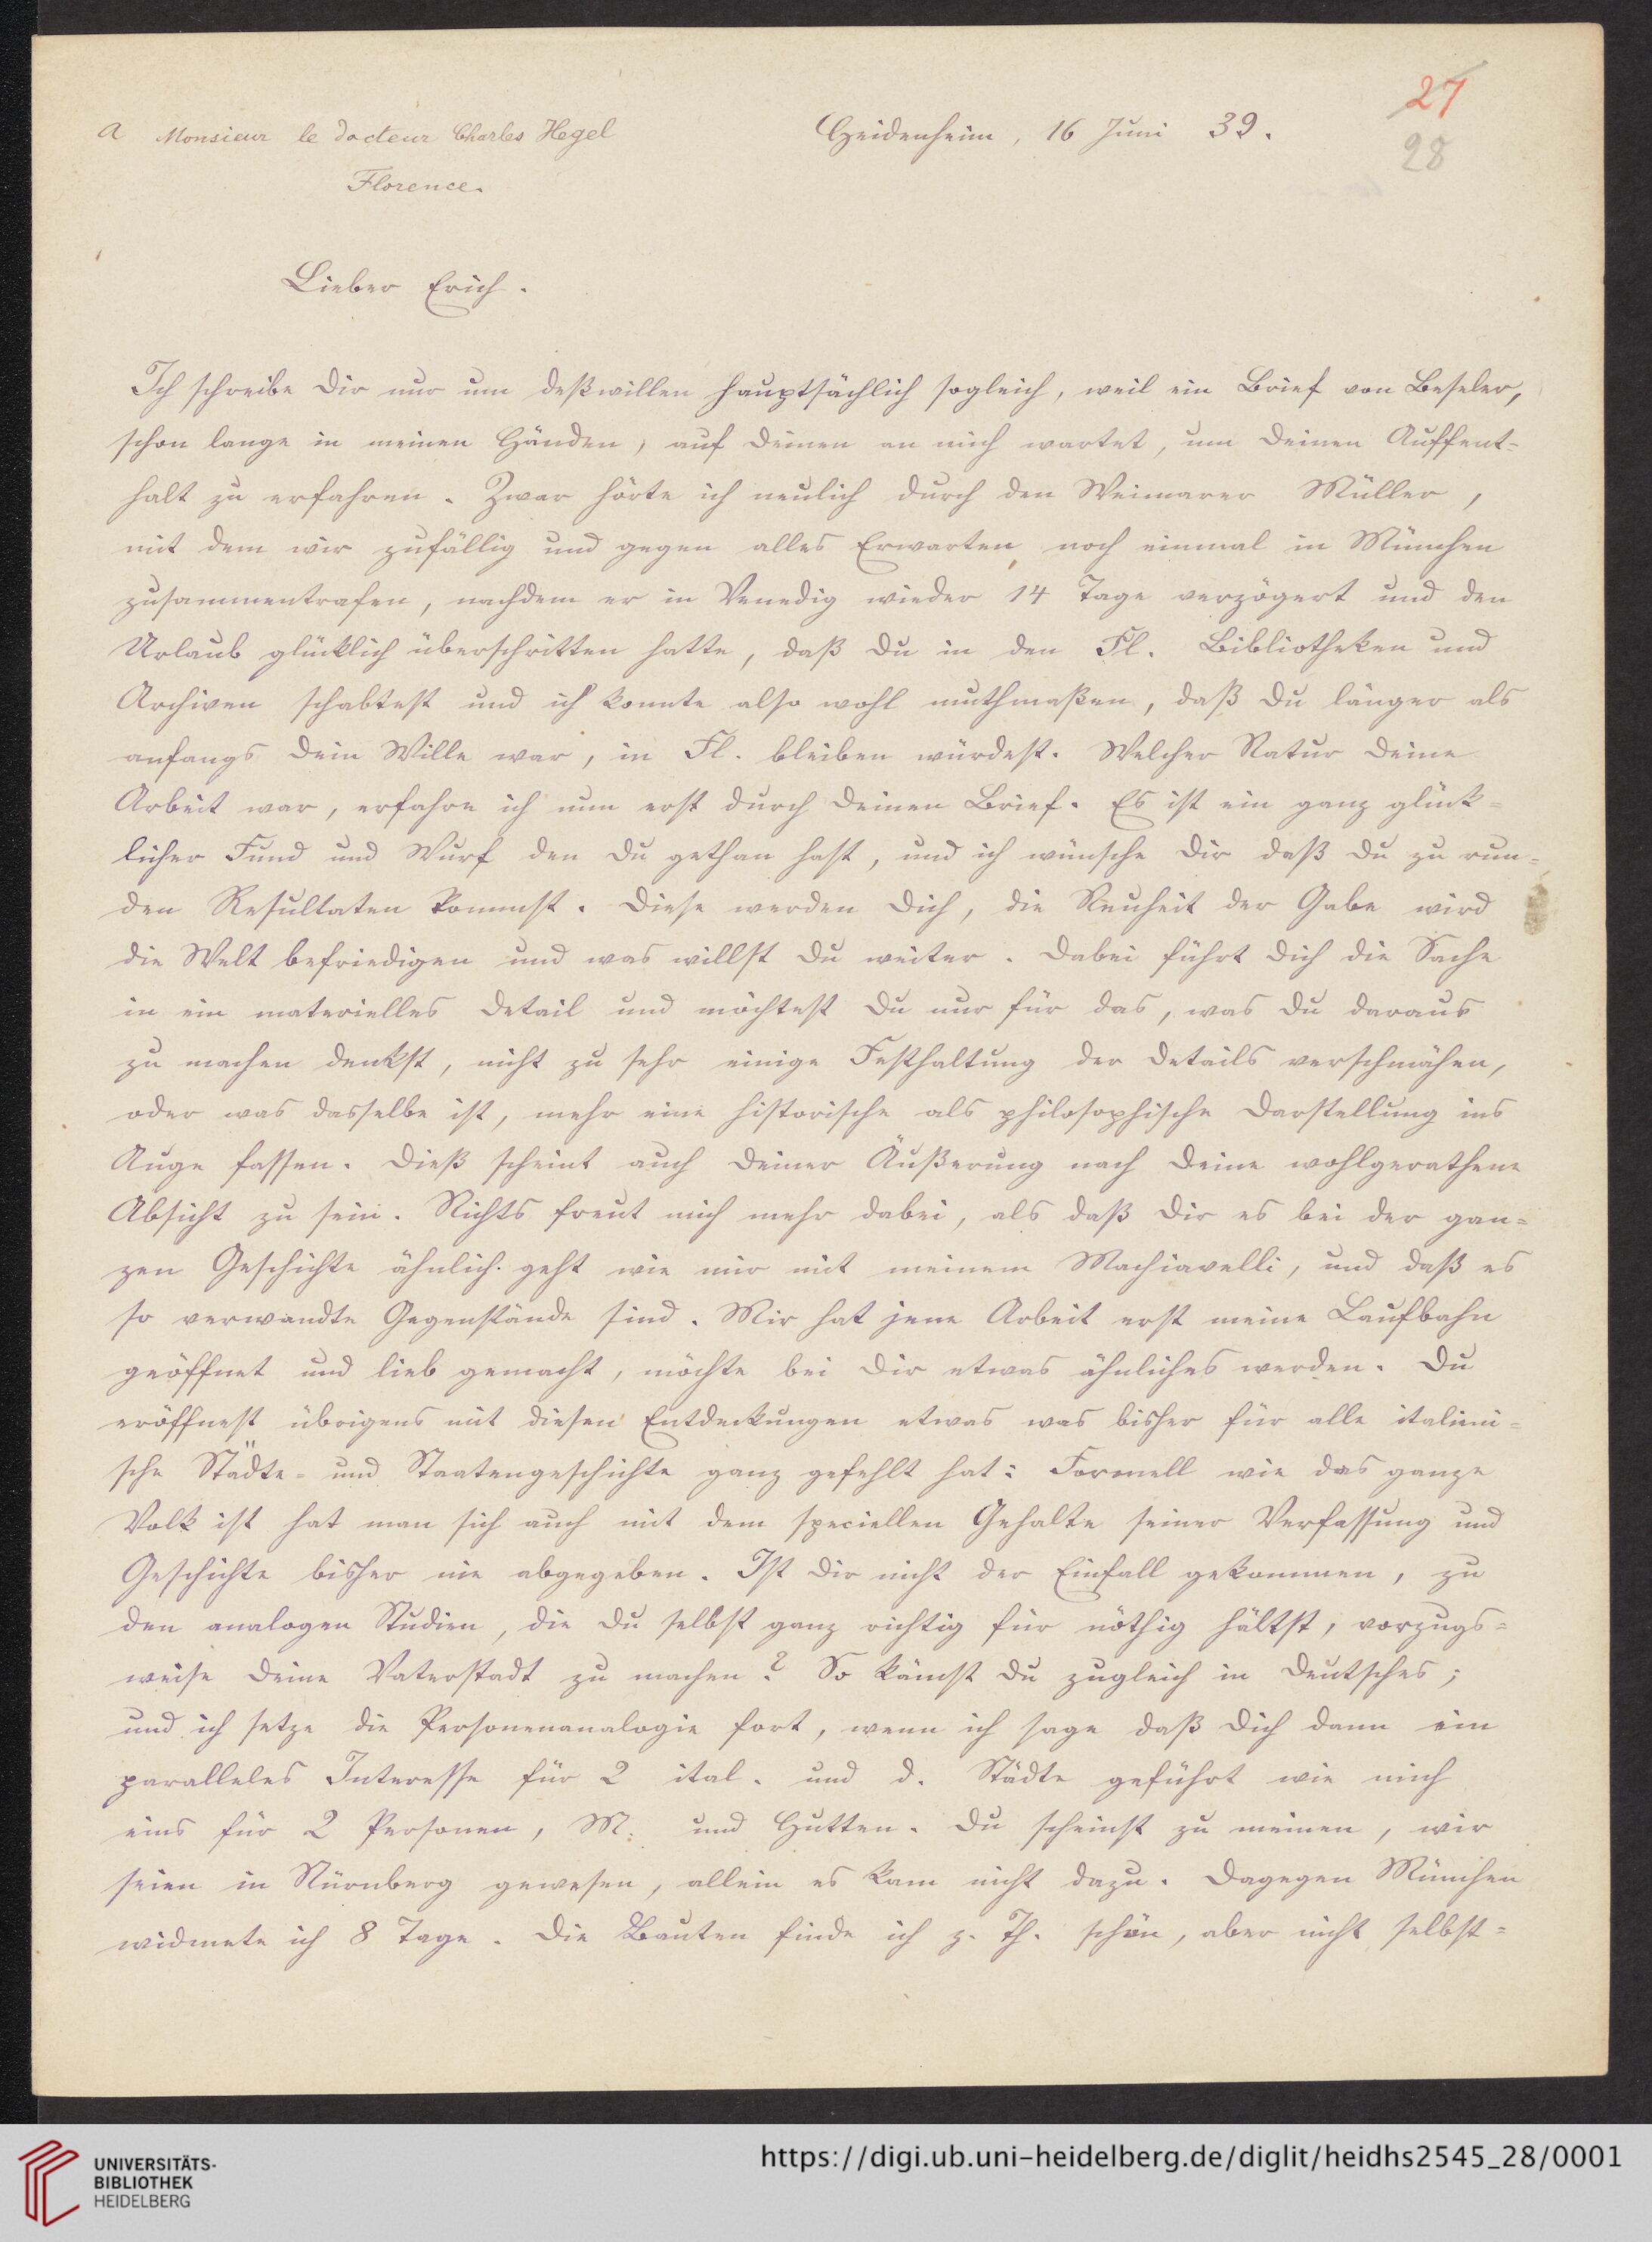 27
28
a Monsieur le docteur Charles Hegel
Florence.
Heidenheim, 16 Juni 39.
Lieber Erich.
Ich schreibe Dir nur um deßwillen hauptsächlich sogleich, weil ein Brief von Beseler,
schon lange in meinen Händen, auf Deinen an mich wartet, um Deinen Auffent-
halt zu erfahren. Zwar hörte ich neulich durch den Weimarer Müller,
mit dem wir zufällig und gegen alles Erwarten noch einmal in München
zusammentrafen, nachdem er in Venedig wieder 14 Tage verzögert und den
Urlaub glücklich überschritten hatte, daß Du in den Fl. Bibliotheken und
Archiven schabtest und ich konnte also wohl muthmaßen, daß Du länger als
anfangs Dein Wille war, in Fl. bleiben würdest. Welcher Natur Deine
Arbeit war, erfahre ich nun erst durch Deinen Brief. Es ist ein ganz glück-
licher Fund und Wurf den Du gethan hast, und ich wünsche Dir daß Du zu run-
den Resultaten kommst. Diese werden Dich, die Neuheit der Gabe wird
die Welt befriedigen und was willst Du weiter. Dabei führt Dich die Sache
in ein materielles Detail und möchtest Du nur für das, was Du daraus
zu machen denkst, nicht zu sehr einige Festhaltung der Details verschmähen,
oder was dasselbe ist, mehr eine historische als philosophische Darstellung ins
Auge fassen. Dieß scheint auch Deiner Äußerung nach Deine wohlgerathene
Absicht zu sein. Nichts freut mich mehr dabei, als daß Dir es bei der gan-
zen Geschichte ähnlich geht wie mir mit meinem Machiavelli, und daß es
so verwandte Gegenstände sind. Mir hat jene Arbeit erst meine Laufbahn
geöffnet und lieb gemacht, möchte bei Dir etwas ähnliches werden. Du
eröffnest übrigens mit diesen Entdeckungen etwas was bisher für alle italieni-
sche Städte- und Staatengeschichte ganz gefehlt hat: Formell wie das ganze
Volk ist hat man sich auch mit dem speciellen Gehalte seiner Verfassung und
Geschichte bisher nie abgegeben. Ist Dir nicht der Einfall gekommen, zu
den analogen Studien, die Du selbst ganz richtig für nöthig hältst, vorzugs-
weise Deine Vaterstadt zu machen? So kämst Du zugleich in Deutsches;
und ich setze die Personenanalogie fort, wenn ich sage daß Dich dann ein
paralleles Interesse für 2 ital. und d. Städte geführt wie mich
eins für 2 Personen, M. und Hutten. Du scheinst zu meinen, wir
seien in Nürnberg gewesen, allein es kam nicht dazu. Dagegen München
widmete ich 8 Tage. Die Bauten finde ich z. Th. schön, aber nicht selbst-
UNIVERSITÄTS-
BIBLIOTHEK
HEIDELBERG
https://digi.ub.uni-heidelberg.de/diglit/heidhs2545_28/0001